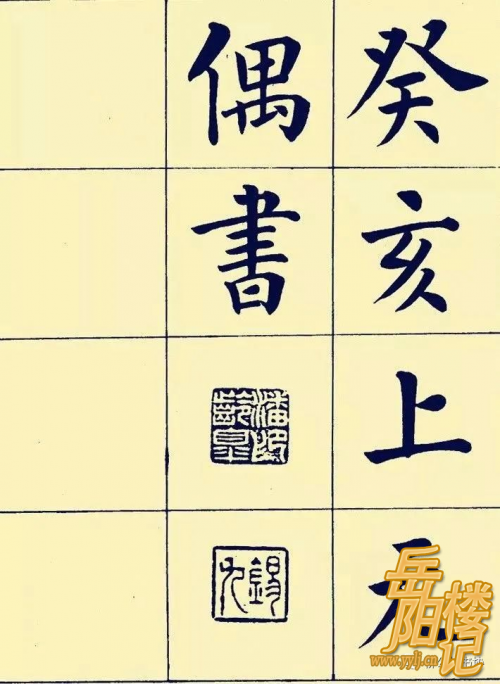 癸亥上元
偶書
潘印齡皋
錫九
岳阳楼记
www.yylj.cn